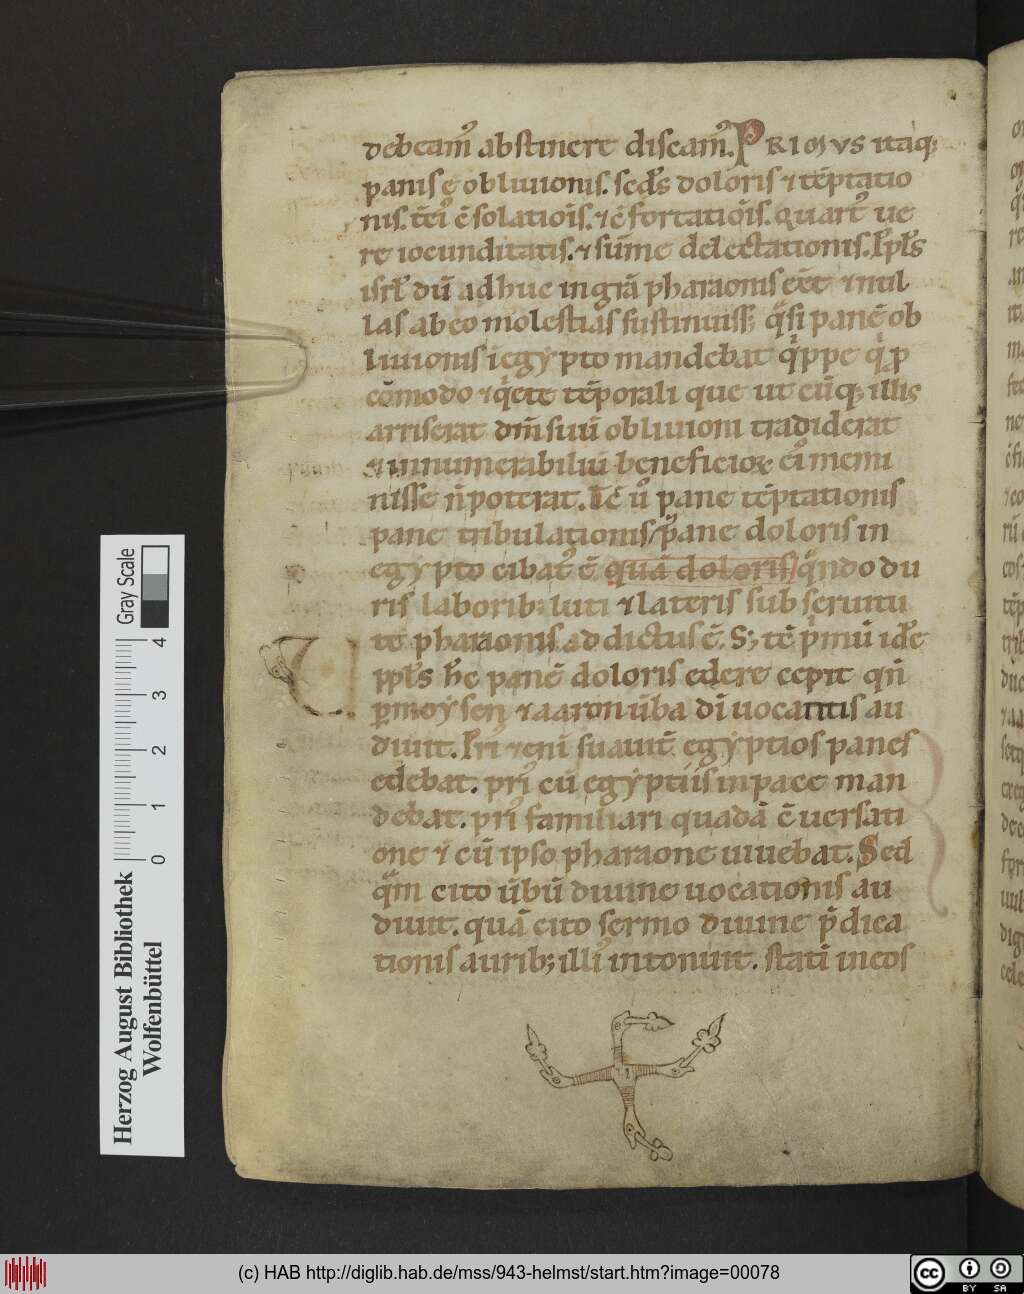 debeam᷒ abstinere discam᷒. PRIMVS itaq;
panis ē obliuionis. scds̄ doloris ⁊ tēptatio
nis. t̄ci᷒ c̄solatiōis. ⁊ c̄fortatiōis. quart᷒ ue
re iocunditatis. ⁊ sūme delectationis. Ppl̄s
isrl̄ dū adhuc in grā pharaonis eēt ⁊ nul
las ab eo molestias sustinuiss; q̄si panē ob
liuionis ī egypto manducabat
cōmodo ⁊ qͥete tēporali que ut cūq; illis
arriserat dn̄m suū obliuioni tradiderat
⁊ innumerabiliū beneficioꝝ ei᷒ memi
nisse n̄ poterat. Tc̄ u᷒ pane tēptationis
pane tribulationis pane doloris in
egypto cibat᷒ ē quā doloris qͣndo du
ris laborib; luti ⁊ lateris sub seruitu
te pharaonis addictus ē. S; tc̄ p̄mū idē
ppl̄s hc̄ panē doloris edere cepit qn̄
ꝑ moysen ⁊ aaron ūba dī uocantis au
diuit. Pri᷒ eni suauit᷒ egyptios panes
edebat. pri᷒ cū egyptiis in pace man
debat. pri᷒ familiari quadā c̄uersati
one ⁊ cū ipso pharaone uiuebat. Sed
qͣm cito ūbū diuine uocationis au
diuit. quā cito sermo diuine p̄dica
tionis aurib; illi᷒ intonuit. statī in eos
Gray Scale
4
3
2
1
0
Herzog August Bibliothek
Wolfenbüttel
(c) HAB http://diglib.hab.de/mss/943-helmst/start.htm?image=00078
cc BY SA